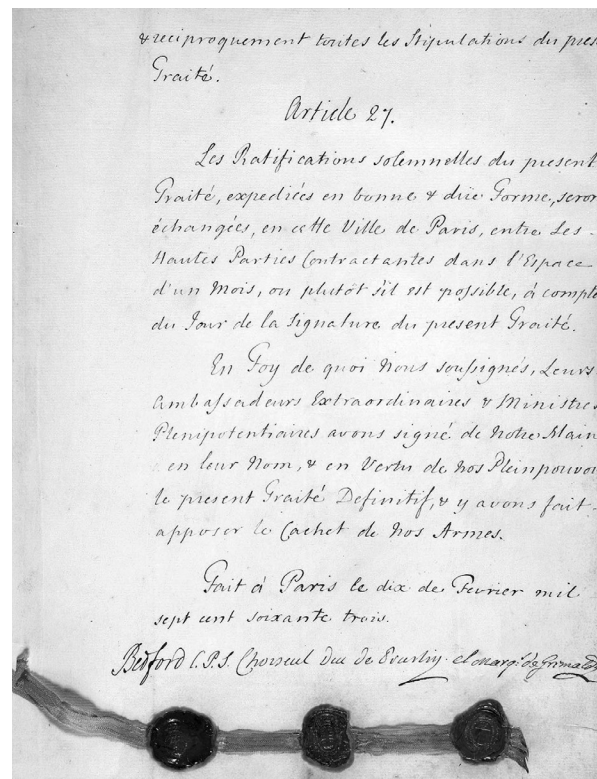 & reciproquement toutes les Stipulations du pres
Traité.
Article 27.
Les Ratifications solemnelles du present
Traité, expediées en bonne & düe Forme, seron
échangées, en cette Ville de Paris, entre Les
Hautes Parties Contractantes dans l'Espace
d'un Mois, ou plutôt s'il est possible, à compte
du Jour de la Signature du present Traité.
En Foy de quoi Nous soussignés, Leurs
Ambassadeurs Extraordinaires & Ministres
Plenipotentiaires avons signé de Notre Main
en leur Nom, & en Vertu de nos Pleinpouvoi
le present Traité Definitif, & y avons fait
apposer le Cachet de nos Armes.
Fait à Paris le dix de Fevrier mil
sept cent soixante trois.
Bedford C.P.S. Choiseul Duc de Praslin. el marq.s de Grimaldi